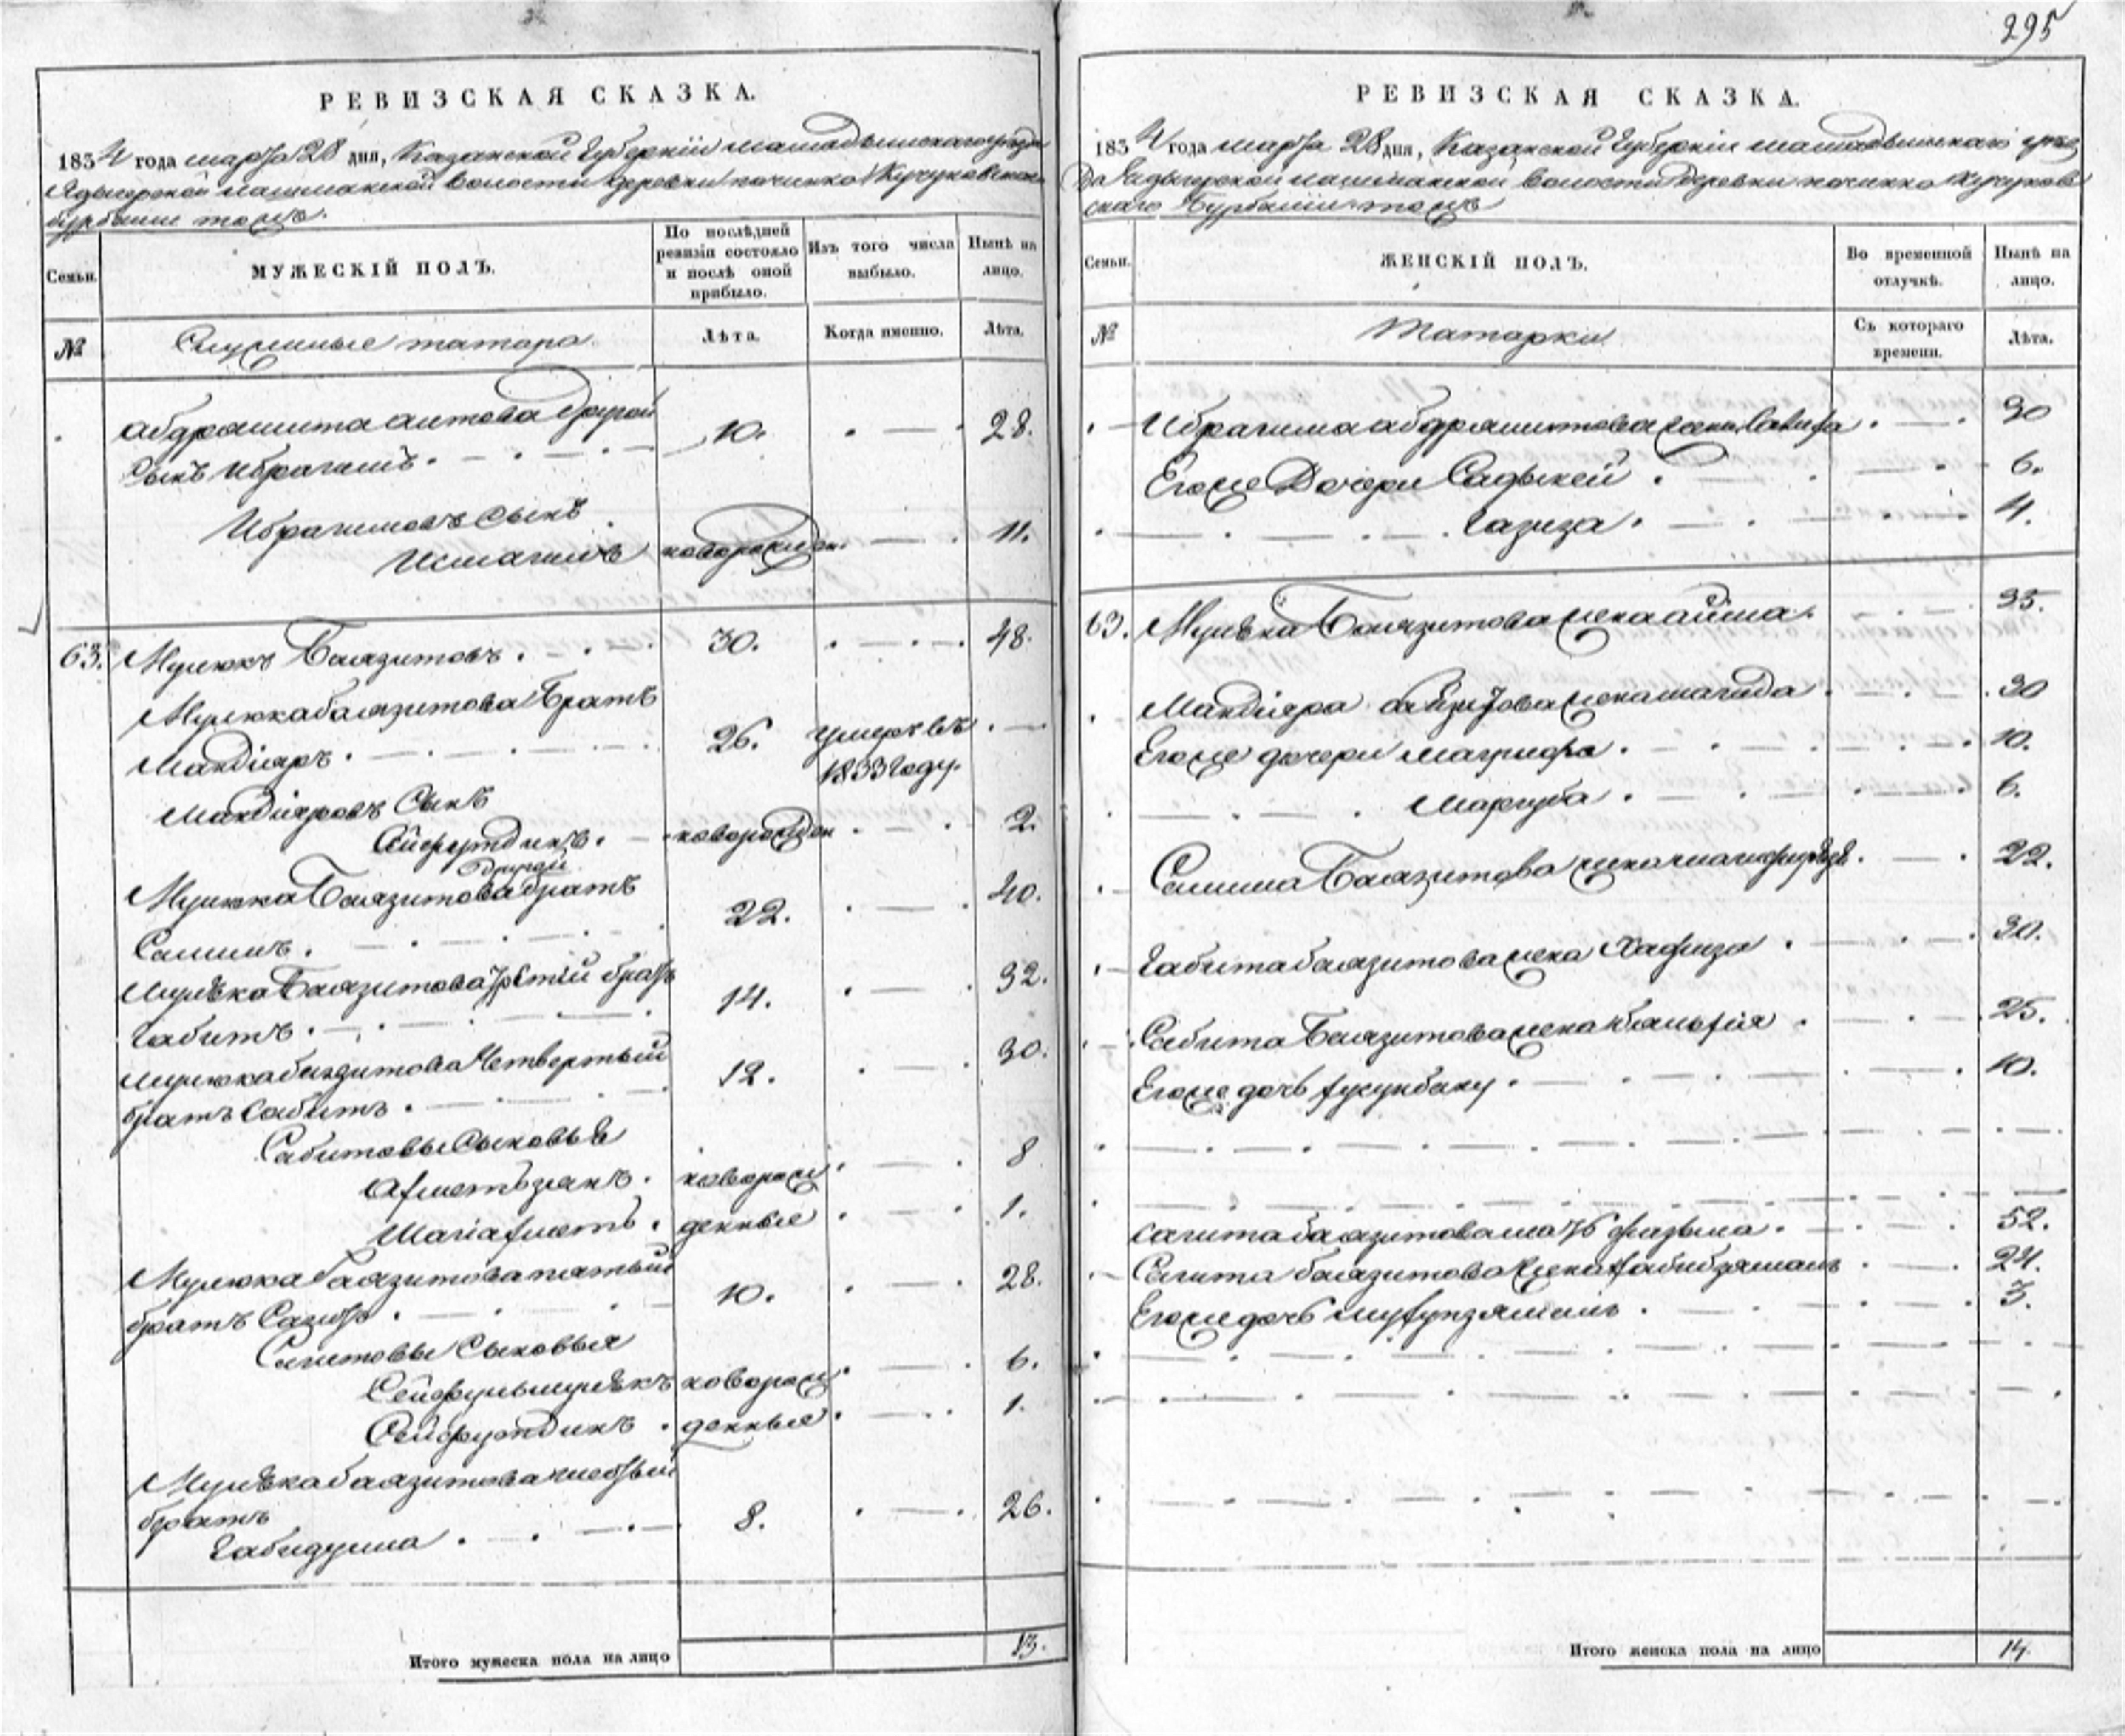 295
РЕВИЗСКАЯ СКАЗКА.
1834 года марта 28 дня, Казанской Губернии мамадышскаго уезда
Адаевской волости деревни починка Кучуковскаго
бурбаши тожъ.
Семьи.
МУЖЕСКІЙ ПОЛЪ.
По послѣдней ревизіи состояло и послѣ оной прибыло.
Изъ того числа выбыло.
Нынѣ на лицо.
№
Служилые татара
Лѣта.
Когда именно.
Лѣта.
абдрашита аитова другой
сынъ Ибрагимъ. 10. 28.
Ибрагимовъ сынъ
Исмагилъ новорожден. 11.
63. Мулюкъ Баязитовъ. 30. 48.
Мулюка баязитова братъ
Мандіяръ. 26. умеръ въ
1833 году.
Мандіяровъ Сынъ
Сейфутдинъ. новорожден 2.
другой
Мулюка Баязитова братъ
Салимъ. 22. 40.
Мулюка Баязитова третій братъ
Габитъ. 14. 32.
Мулюка баязитова Четвертый
братъ Сабитъ. 12. 30.
Сабитовы Сыновья
Ахметьзянъ. новорож 8
Шагіахметъ. денные 1.
Мулюка баязитова пятый
братъ Сагитъ. 10. 28.
Сагитовы Сыновья
Сейфульмулюкъ новорож 6.
Сейфутдинъ. денные 1.
Мулюка баязитова шестый
братъ
Габидулла. 8. 26.
Итого мужеска пола на лицо 13.
РЕВИЗСКАЯ СКАЗКА.
1834 года марта 28 дня, Казанской Губерніи мамадышскаго уез
да волости деревни починка Кучуков
скаго Бурбаши тожъ
Семьи.
ЖЕНСКІЙ ПОЛЪ.
Во временной отлучкѣ.
Нынѣ на лицо.
№
Татарки
Съ котораго времени.
Лѣта.
Ибрагима абдрашитова жена Латифа. 30
Егоже Дочери Садыкей. 6.
Газиза. 4.
63. Мулюка Баязитова жена аиша. 35.
Мандіяра баязитова жена магида. 30
Егоже дочери магруфа. 10.
Маргуба. 6.
Салима Баязитова жена 22.
Габита баязитова жена Хафиза. 30.
Сабита Баязитова жена 25.
Егоже дочь 10.
сагита баязитова мать фазыла. 52.
Сагита баязитова жена Хабибзямалъ. 24.
Егоже дочь 3.
Итого женска пола на лицо 14.